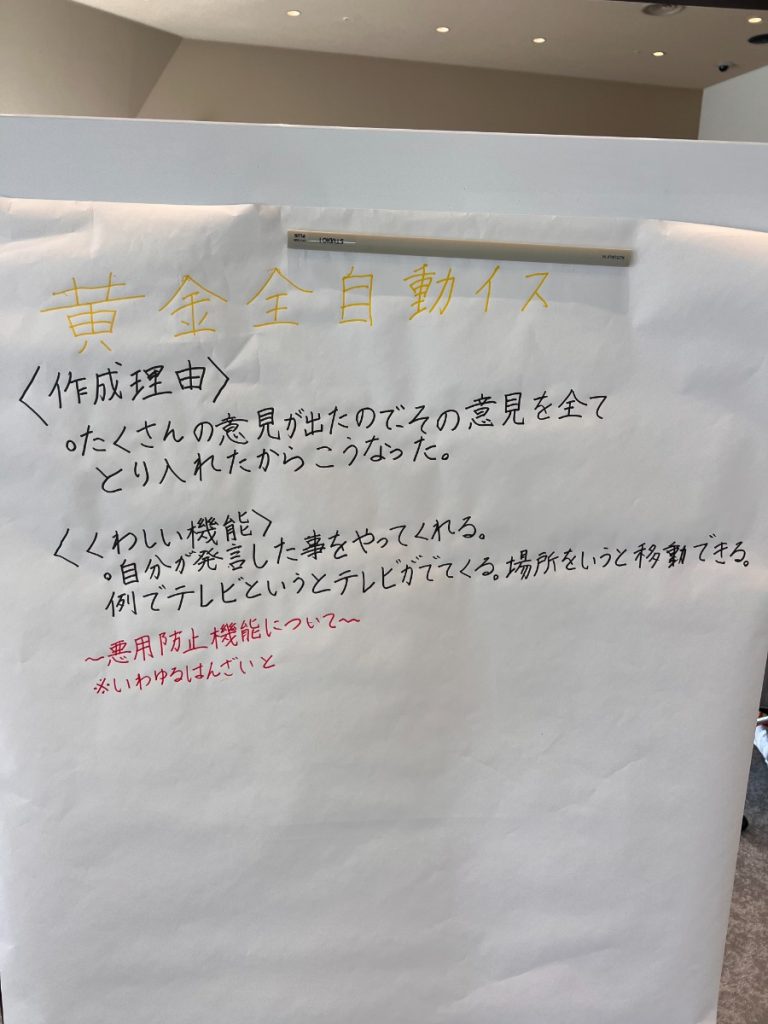 黄金全自動イス
〈作成理由〉
。たくさんの意見が出たので、その意見を全て
とり入れたからこうなった。
〈くわしい機能〉
。自分が発言した事をやってくれる。
例でテレビというとテレビがでてくる。場所をいうと移動できる。
～悪用防止機能について～
※いわゆるはんざいと